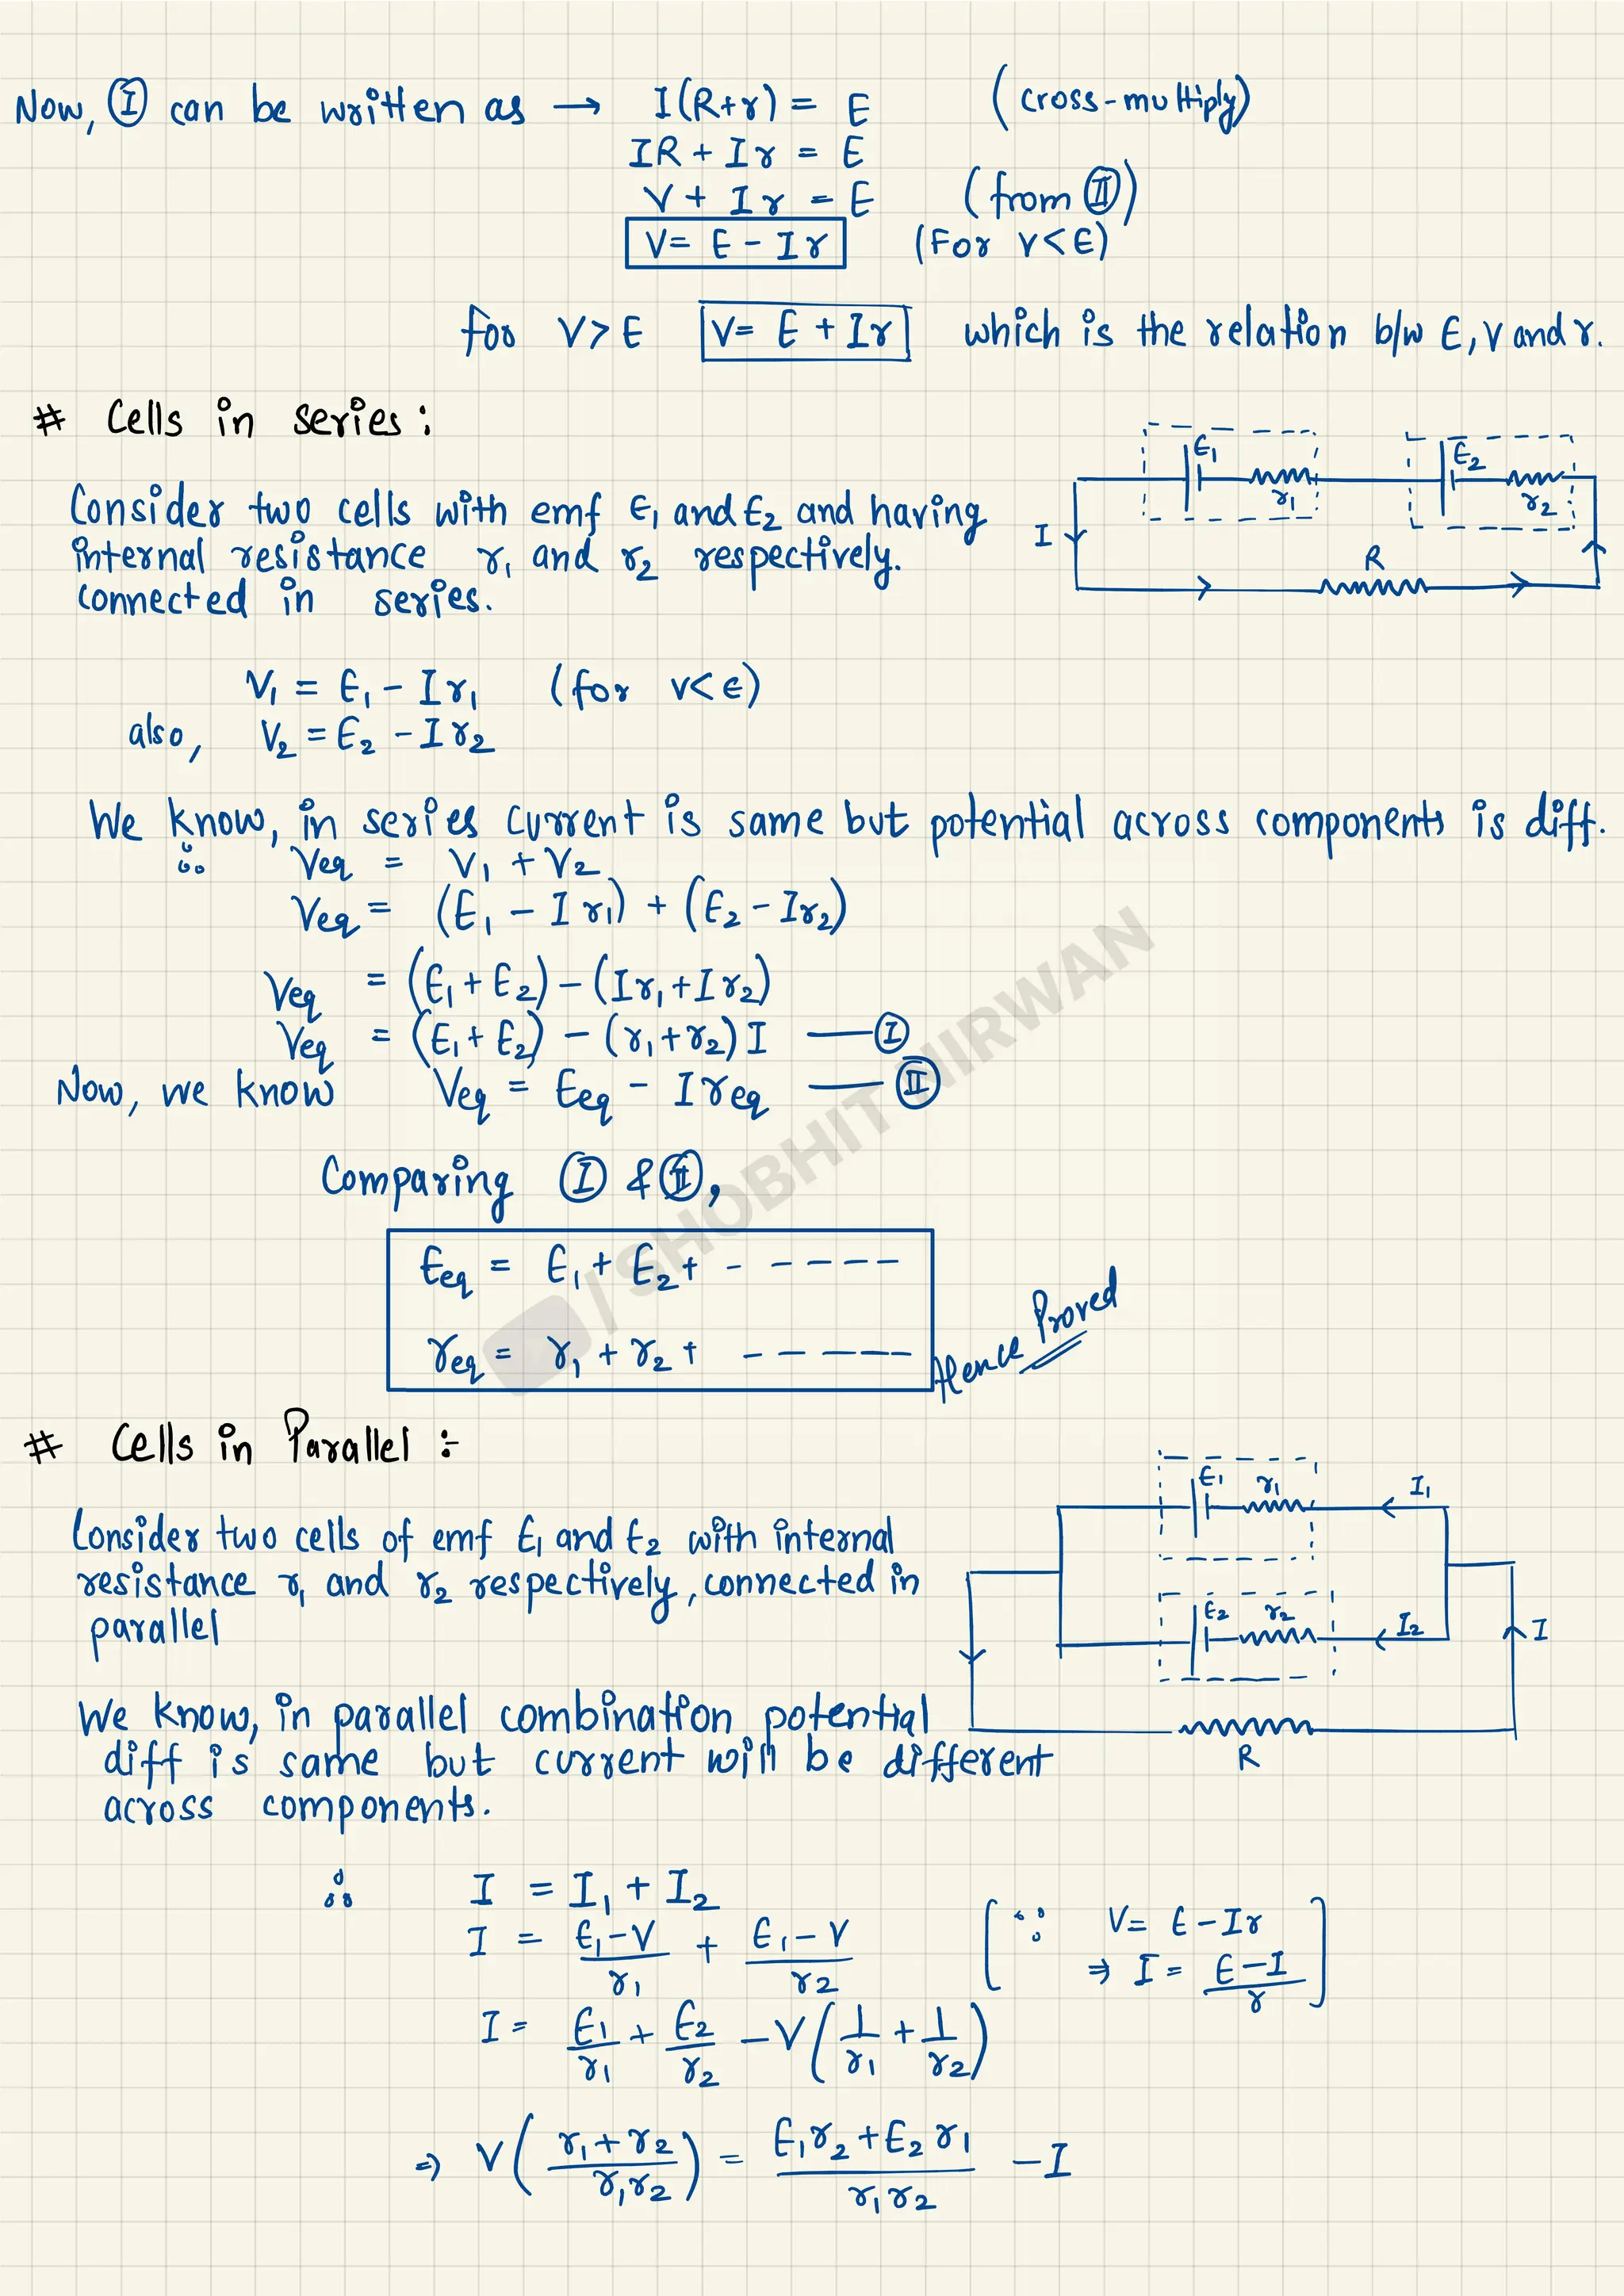 Now, Ⓘ can be written as → I(R+r) = E (cross-multiply)
IR + Ir = E
V + Ir = E (from Ⓘ Ⓘ)
V = E - Ir (For V<E)
for V>E V = E + Ir which is the relation b/w E, V and r.
# Cells in series:
Consider two cells with emf E₁ and E₂ and having
internal resistance r₁ and r₂ respectively.
connected in series.
E₁ r₁ E₂ r₂
I R
V₁ = E₁ - Ir₁ (for V<E)
also, V₂ = E₂ - Ir₂
We know, in series current is same but potential across components is diff.
∴ Veq = V₁ + V₂
Veq = (E₁ - Ir₁) + (E₂ - Ir₂)
Veq = (E₁ + E₂) - (Ir₁ + Ir₂)
Veq = (E₁ + E₂) - (r₁ + r₂) I — Ⓘ
Now, we know Veq = Eeq - Ireq — ⓘⓘ
Comparing Ⓘ & ⓘⓘ,
Eeq = E₁ + E₂ + - - - - - -
req = r₁ + r₂ + - - - - - -
Hence Proved
/ SHOBHIT NIRWAN
# Cells in Parallel :-
Consider two cells of emf E₁ and E₂ with internal
resistance r₁ and r₂ respectively, connected in
parallel
E₁ r₁ I₁
E₂ r₂ I₂
I
R
We know, in parallel combination potential
diff is same but current will be different
across components.
∴ I = I₁ + I₂
I = (E₁-V)/r₁ + (E₁-V)/r₂ [∵ V = E - Ir
⇒ I = (E-I)/r]
I = E₁/r₁ + E₂/r₂ - V(1/r₁ + 1/r₂)
⇒ V((r₁+r₂)/(r₁r₂)) = (E₁r₂+E₂r₁)/(r₁r₂) - I